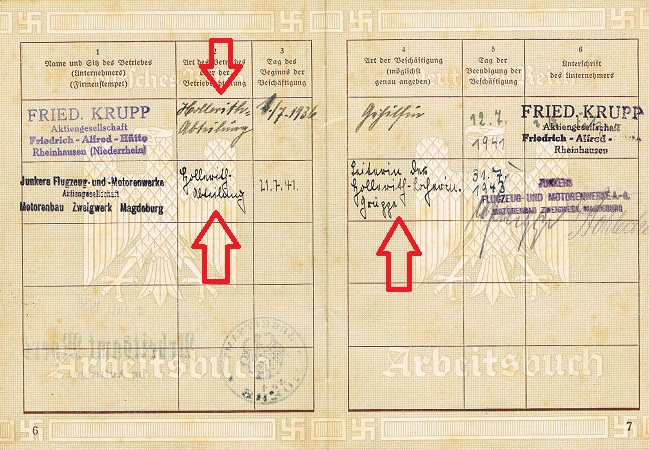 1
Name und Sitz des Betriebes
(Unternehmers)
(Firmenstempel)
2
Art des Betriebes
oder der
Betriebsabteilung
3
Tag des
Beginns der
Beschäftigung
FRIED. KRUPP
Aktiengesellschaft
Friedrich-Alfred-Hütte
Rheinhausen (Niederrhein)
Hollerith-
Abteilung
1/7.1936
Junkers Flugzeug-und-Motorenwerke
Aktiengesellschaft
Motorenbau Zweigwerk Magdeburg
Hollerith-
Abteilung
21.7.41.
Arbeitsbuch
6
4
Art der Beschäftigung
(möglichst
genau angeben)
5
Tag der
Beendigung der
Beschäftigung
6
Unterschrift
des Unternehmers
Gehilfin
12.7.
1941
FRIED. KRUPP
Aktiengesellschaft
Friedrich-Alfred-
Rheinhausen
Leiterin der
Hollerith-Locherin.
Gruppe
31.7.
1943
JUNKERS
FLUGZEUG- UND MOTORENWERKE A.-G.
MOTORENBAU ZWEIGWERK, MAGDEBURG
Arbeitsbuch
7